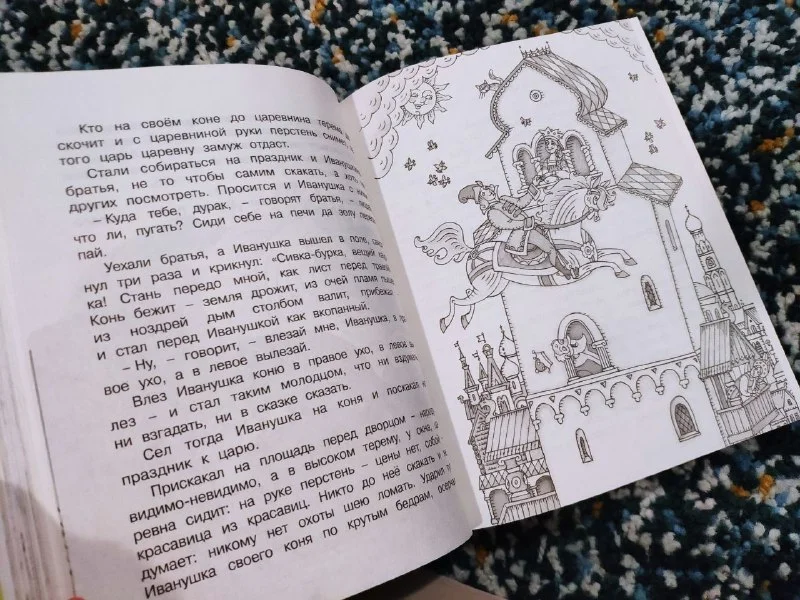 Кто на своём коне до царевнина терема
скочит и с царевниной руки перстень снимет
того царь царевну замуж отдаст.
Стали собираться на праздник и Иванушкины
братья, не то чтобы самим скакать, а хоть
других посмотреть. Просится и Иванушка с
– Куда тебе, дурак, – говорят братья, –
что ли, пугать? Сиди себе на печи да золу
пай.
Уехали братья, а Иванушка вышел в поле,
нул три раза и крикнул: «Сивка-бурка, вещий
ка! Стань передо мной, как лист перед травой
Конь бежит – земля дрожит, из очей пламя
из ноздрей дым столбом валит, прибежал
и стал перед Иванушкой как вкопанный.
– Ну, – говорит, – влезай мне, Иванушка, в
вое ухо, а в левое вылезай.
Влез Иванушка коню в правое ухо, в левое
лез – и стал таким молодцом, что ни
ни взгадать, ни в сказке сказать.
Сел тогда Иванушка на коня и поскакал
праздник к царю.
Прискакал на площадь перед дворцом –
видимо-невидимо, а в высоком терему, у окна,
ревна сидит: на руке перстень – цены нет, собой
красавица из красавиц. Никто до неё скакать и
думает: никому нет охоты шею ломать. Ударил
Иванушка своего коня по крутым бедрам,